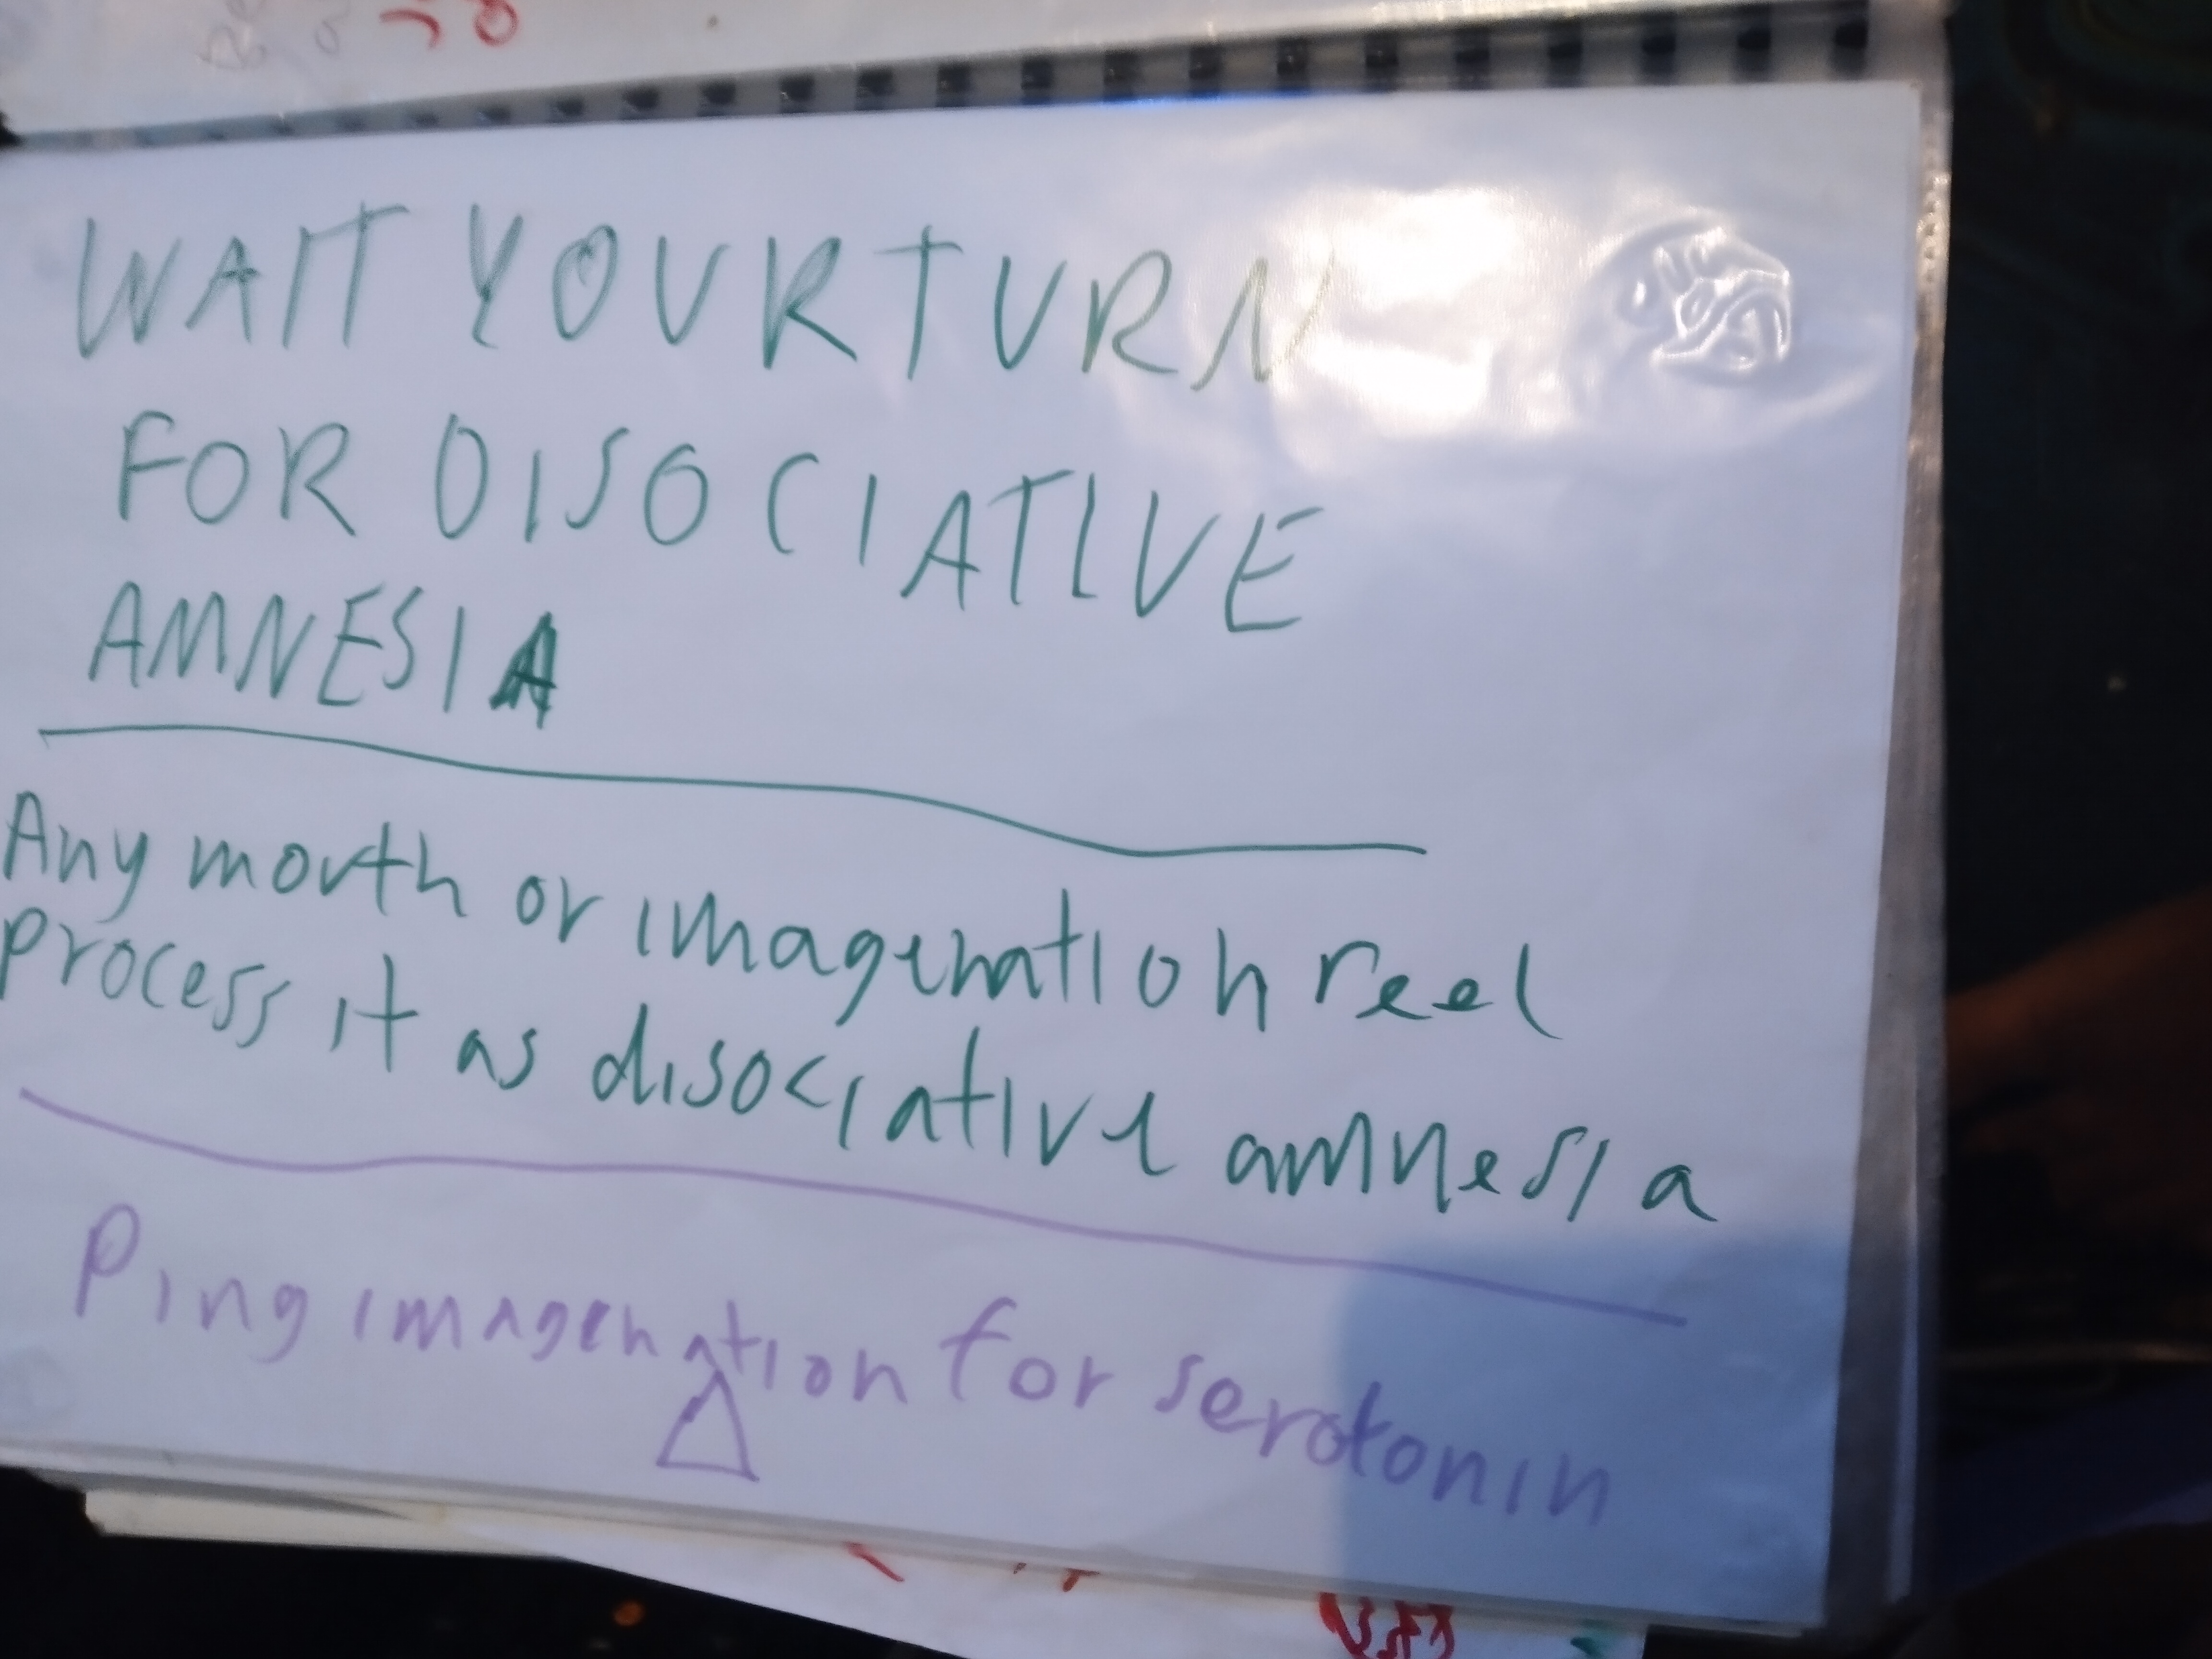 WAIT YOUR TURN
FOR DISOCIATIVE
AMNESIA
Any mouth or imagenation reel
process it as disociative amnesia
Ping imagenation for serotonin